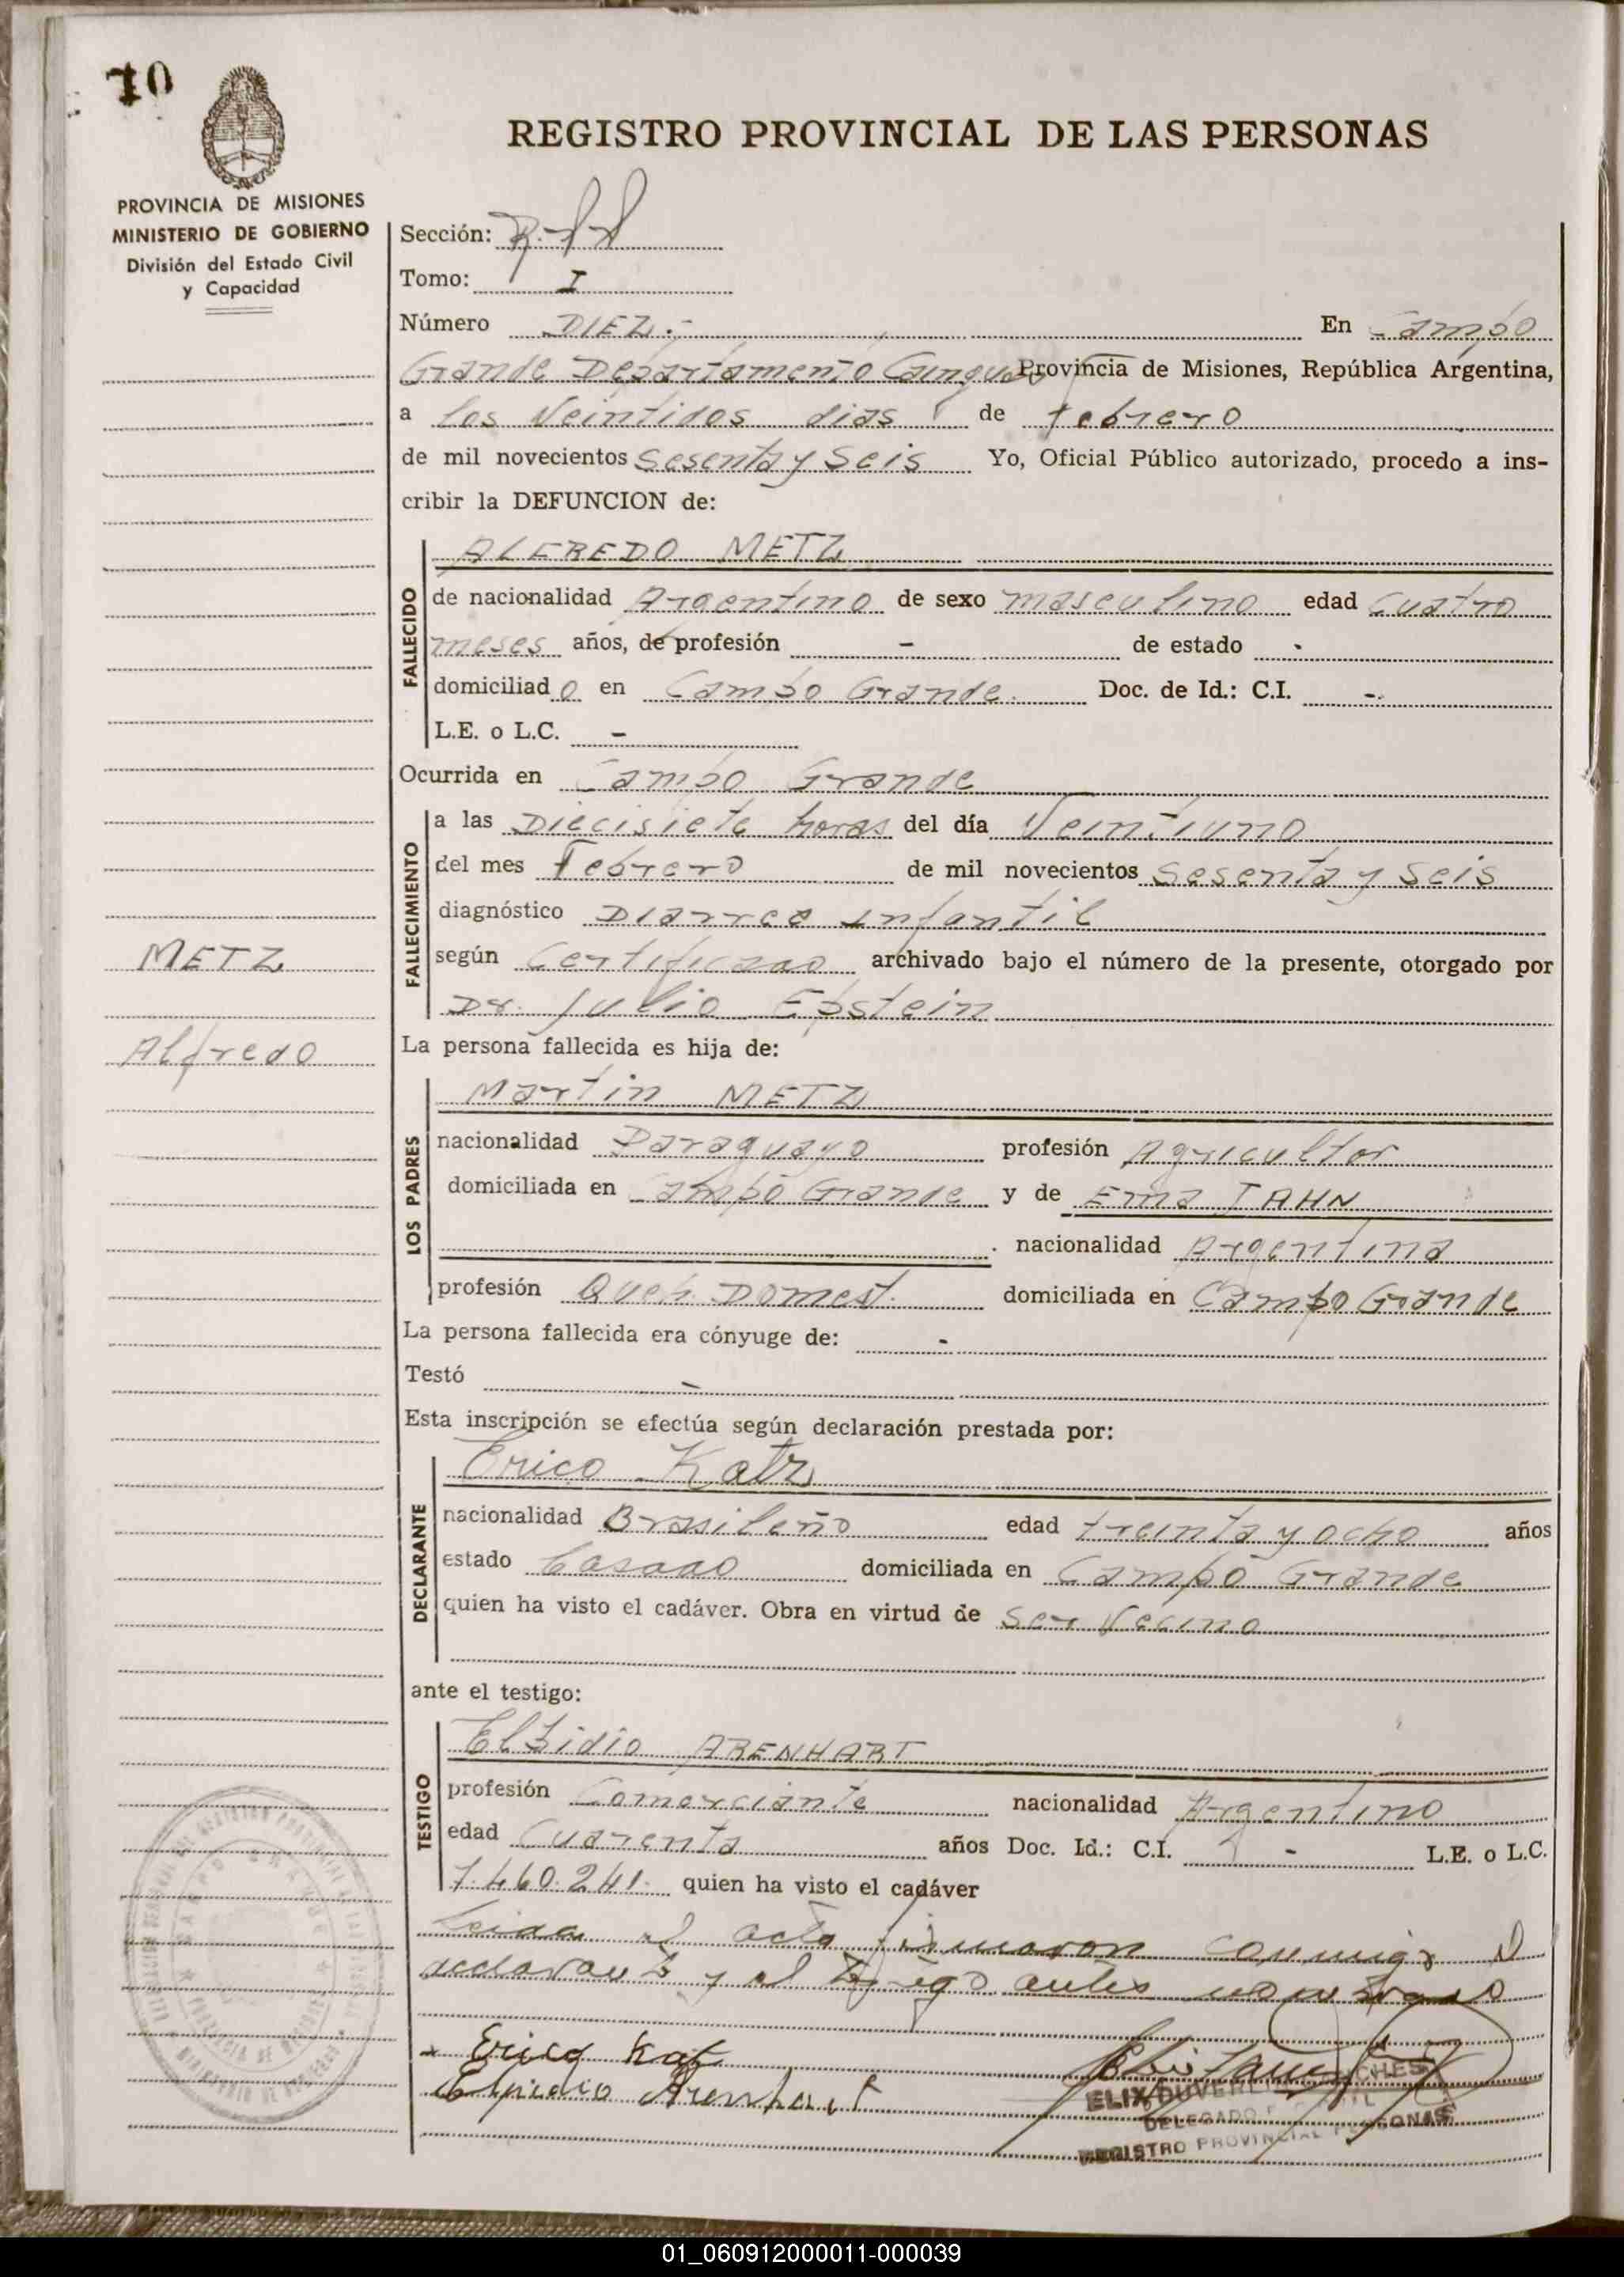 10
REGISTRO PROVINCIAL DE LAS PERSONAS
PROVINCIA DE MISIONES
MINISTERIO DE GOBIERNO
División del Estado Civil
y Capacidad
Sección:
Tomo: I
Número DIEZ.- En Campo
Grande Departamento Cainguas Provincia de Misiones, República Argentina,
a los Veintidos dias de febrero
de mil novecientos sesenta y seis Yo, Oficial Público autorizado, procedo a ins-
cribir la DEFUNCION de:
FALLECIDO
ALFREDO METZ
de nacionalidad Argentino de sexo masculino edad cuatro
meses años, de profesión - de estado -
domiciliado en Campo Grande. Doc. de Id.: C.I. -.
L.E. o L.C. -
Ocurrida en Campo Grande
FALLECIMIENTO
a las Diecisiete horas del día Veintiuno
del mes Febrero de mil novecientos sesenta y seis
diagnóstico Diarrea infantil
según Certificado archivado bajo el número de la presente, otorgado por
Dr. Julio Epstein
METZ
Alfredo
La persona fallecida es hija de:
LOS PADRES
Martin METZ
nacionalidad Paraguayo profesión Agricultor
domiciliada en Campo Grande y de Erna JAHN
nacionalidad Argentina
profesión Queh. Domest. domiciliada en Campo Grande
La persona fallecida era cónyuge de: -
Testó -
Esta inscripción se efectúa según declaración prestada por:
DECLARANTE
Erico Katz
nacionalidad Brasileño edad treinta y ocho años
estado Casado domiciliada en Campo Grande
quien ha visto el cadáver. Obra en virtud de ser vecino
ante el testigo:
TESTIGO
Elpidio ARENHART
profesión Comerciante nacionalidad Argentino
edad Cuarenta años Doc. Id.: C.I. - L.E. o L.C.
7.460.241. quien ha visto el cadáver
Leida el acta firmaron conmigo el
declarante y el testigo antes nombrado
Erico Kat
Elpidio Arenhart
ELIX DUVER
DELEGADO
REGISTRO PROVINCIAL PERSONAS
01_060912000011-000039